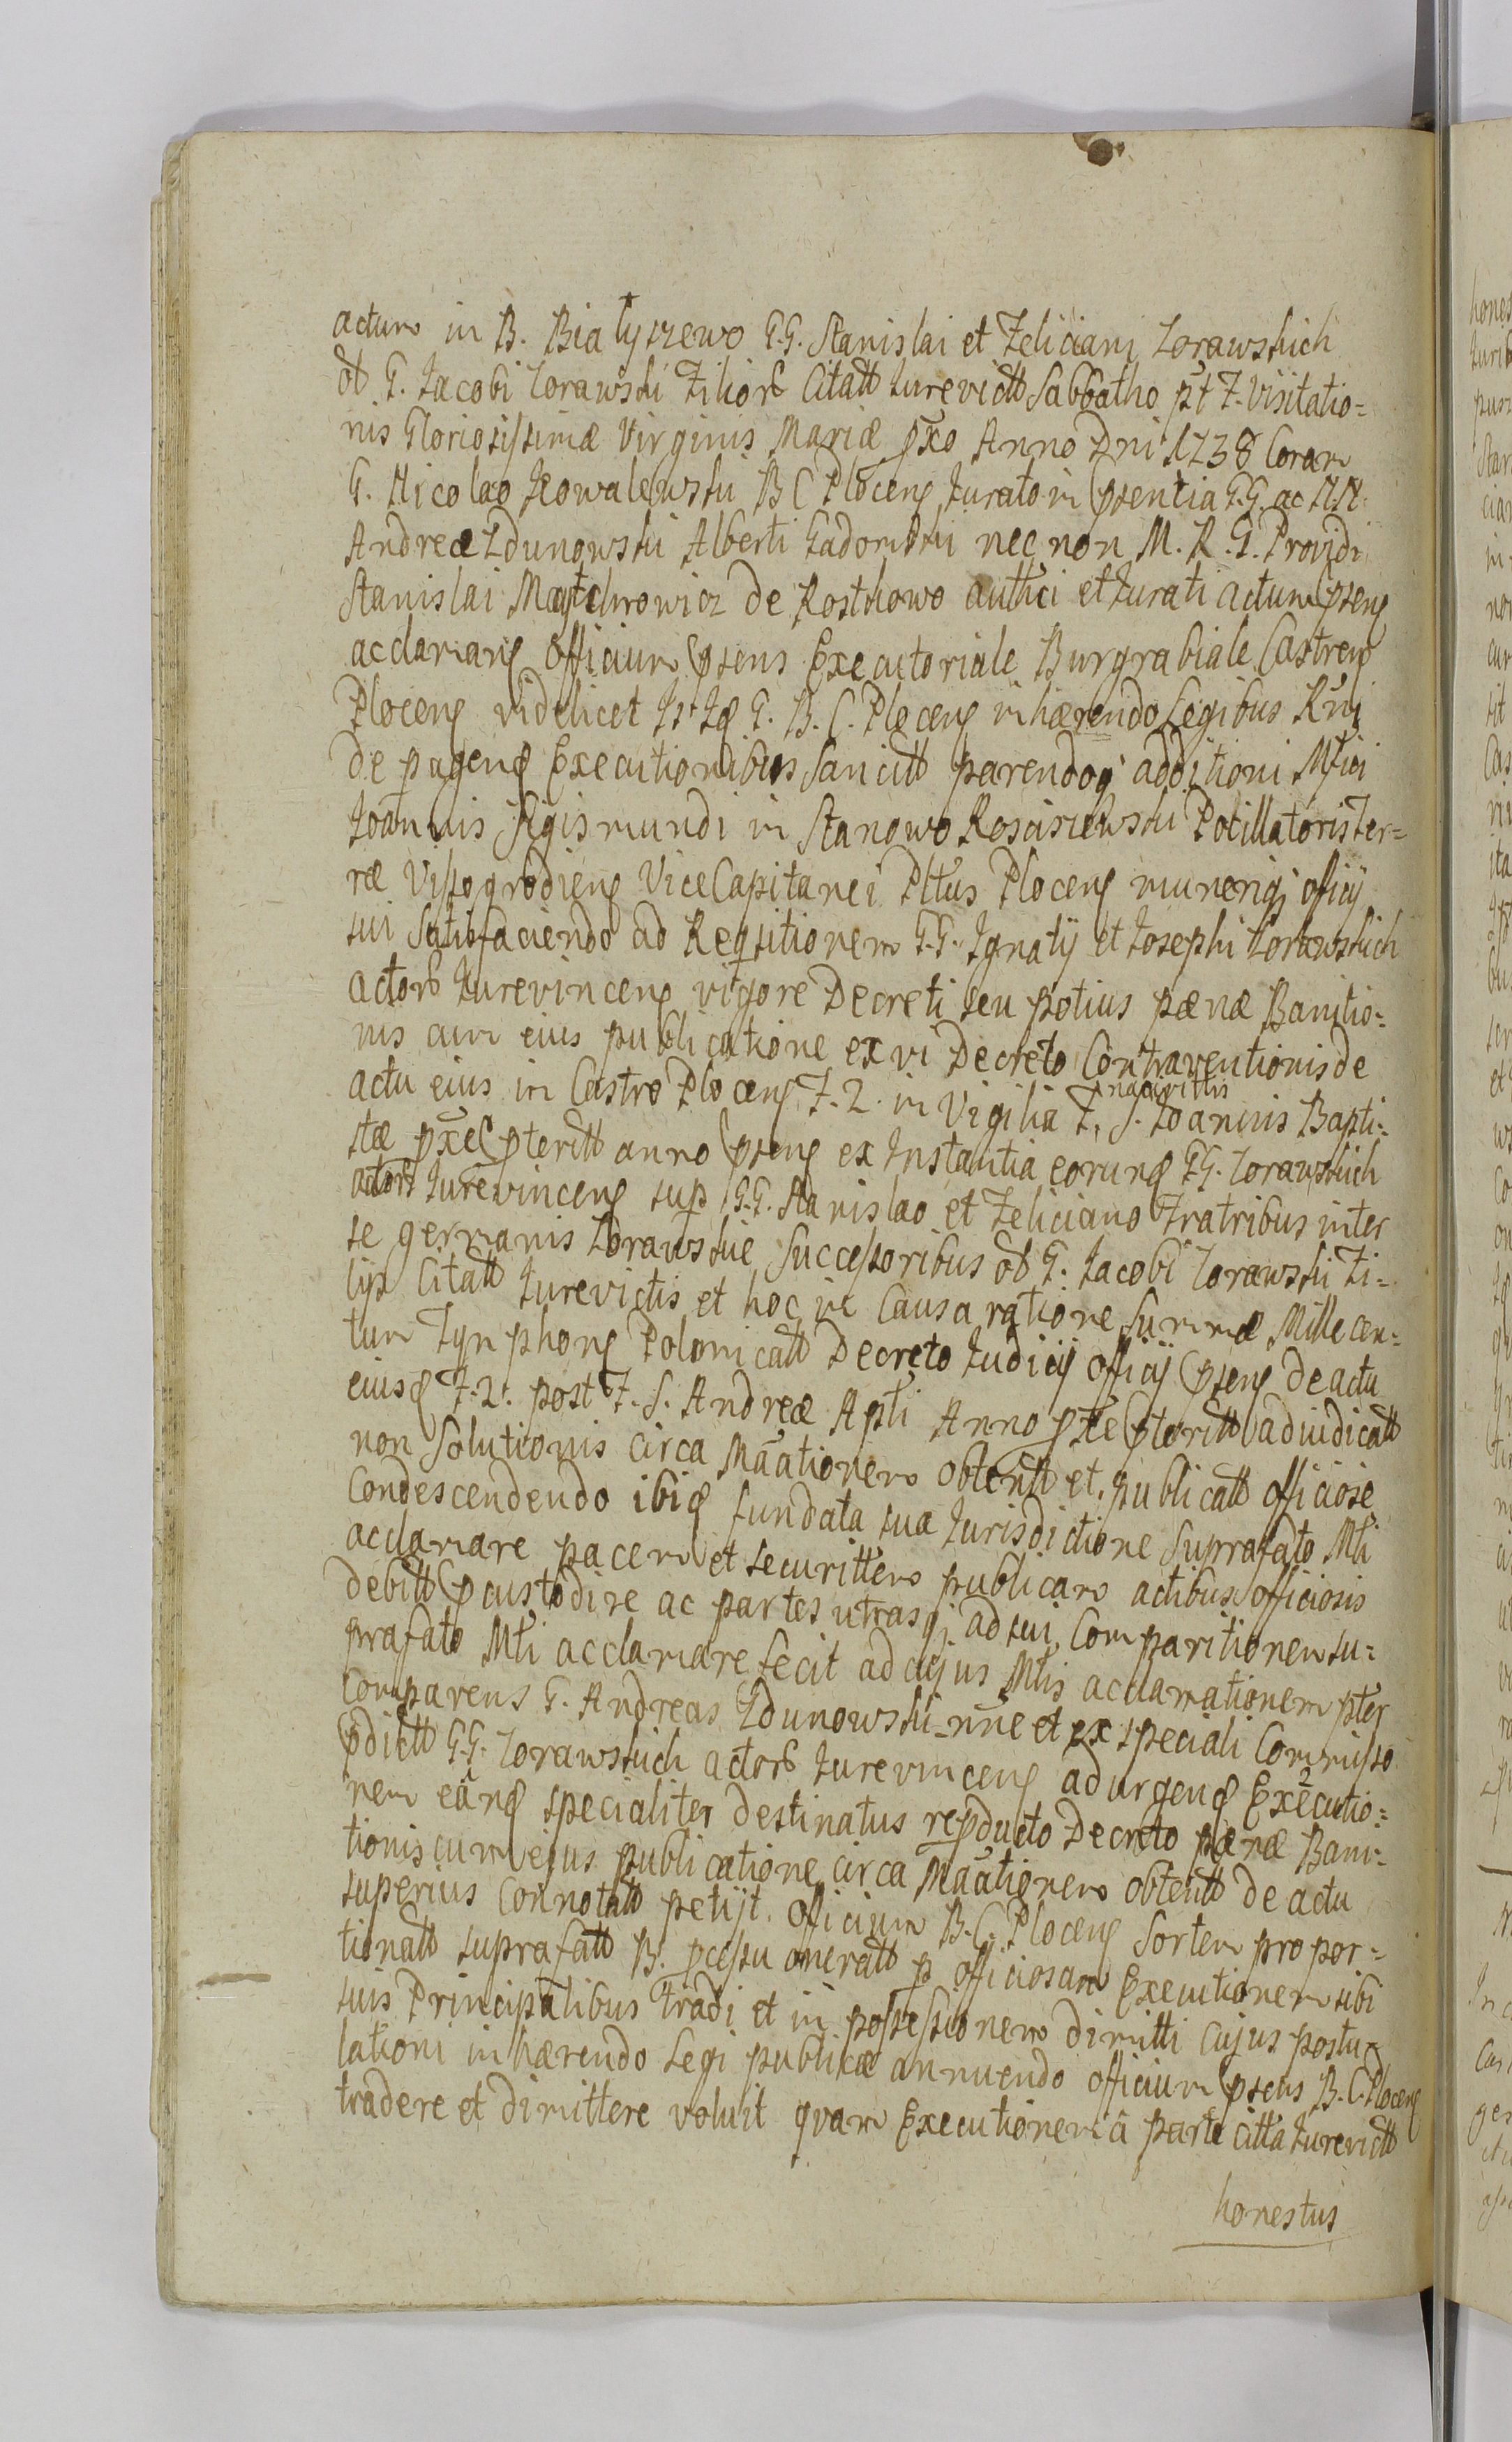 actum in B. Białyszewo G.G. Stanislai et Feliciani Zorawskich
ol G. Jacobi Zorawski Filior Citatt Jurevictt Sabbatho pt F. Visitatio=
nis Gloriosissimæ Virginis Mariæ pxo Anno Dni 1738 Coram
G. Nicolao Kowalewski B C Plocens Jurato in psentia G.G. ac N.N.
Andreæ Zdunowski Alberti Gadomski nec non M. R. G. Providi
Stanislai de Rostkowo authci et Jurati actum psens
acclamans Officium psens Executoriale Burgrabiale Castrens
Plocens videlicet G. B. C. Plocens inhærendo Legibus Rni
de pagend Executionibus Sancitt parendoq additioni Mfici
Joannis Sigismundi in Stanowo Kosciszewski Pocillatoris Ter=
ræ Vissogrodiens ViceCapitanei Pltus Plocens munerisq officij
sui Satisfaciendo ad Reqsitionem G.G. Ignatij et Josephi Zorawskich
actorb Jurevincens vigore Decreti seu potius pænæ Banitio=
nis cum eius publicatione ex vi Decreto Contraventionis de
actu eius in Castro Plocens F. 2. in Vigilia F. nativittis S. Joannis Bapti=
stæ pxe pteritt anno psens ex Instantia eorund G.G. Zorawskich
actorb Jurevincens sup G.G. Stanislao et Feliciano Fratribus inter
se germanis Zorawskie Successoribus ol G. Jacobi Zorawski Fi=
lijs Citatt Jurevictis et hoc in Causa ratione Summæ Mille cen=
tum Tynphons Polonicatt Decreto Judicij Officij psens de actu
eiusd F. 2. post F. S. Andreæ Apti Anno pxe pteritt adiudicatt
non Solutionis circa Maationem obtentt et publicatt officiose
Condescendendo ibid fundata sua Jurisdictione Suprafato Mti
acclamare pacem et securittem publicam actibus officiosis
debitt pcustodire ac partes utrasq ad sui Comparitionem su=
prafato Mti acclamare fecit ad cujus Mtis acclamationem pter
Comparens G. Andreas Zdunowski nne et ex speciali Commisso
pdictt G.G. Zorawskich actorb Jurevincens ad urgend Executio=
nem eand specialiter destinatus repducto Decreto pænæ Bani=
tionis cum ejus publicatione circa Maationem obtentt de actu
superius Connotatt petijt. Officium B. C. Plocens Sortem propor=
tionatt suprafatt B. pcessu oneratt p officiosam Executionem sibi
suis Principalibus tradi et in possessionem dimitti Cujus postu=
lationi inhærendo Legi publicæ annuendo officium psens B. C. Plocens
tradere et dimittere voluit qvam Executionem â parte citta Jurevictt
honestus